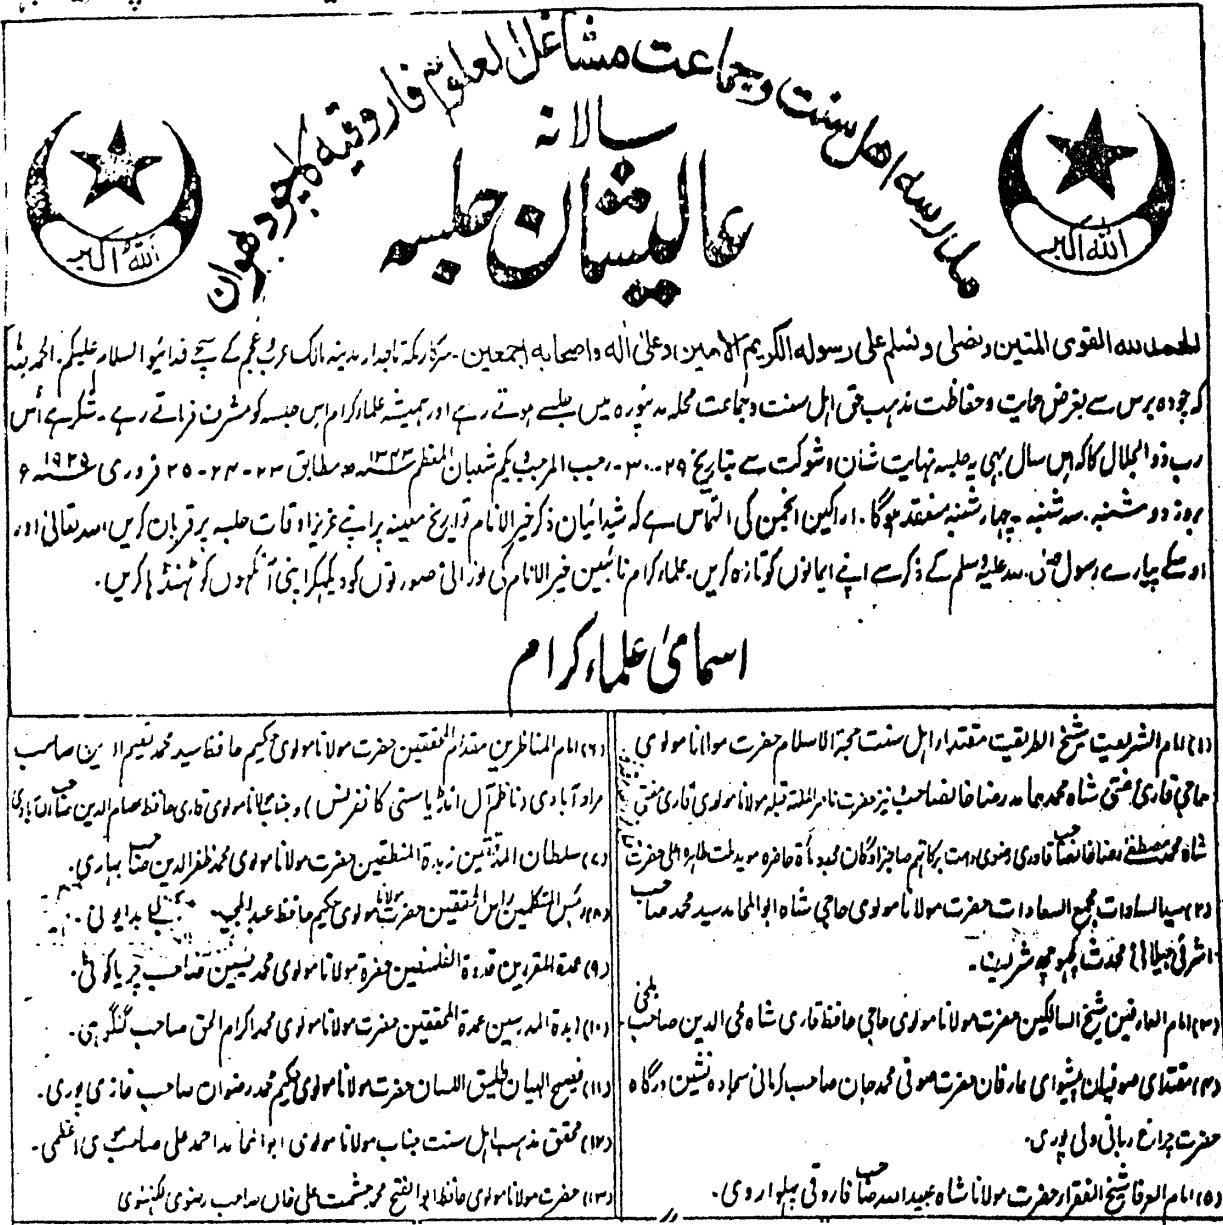 مدرسہ اهل سنت وجماعت مشاغل العلوم فاروقیہ کاچودهواں
سالانہ
عالیشان جلسہ
الله اکبر
الله اکبر
الحمد لله القوی المتین ونصلی ونسلم علی رسولہ الکریم الامین وعلیٰ آلہ واصحابہ اجمعین۔ سرکار مکہ تاجدار مدینہ مالک عرب وعجم کے سچے فدائیو السلام علیکم۔ الحمد للہ
کہ چودہ برس سے بغرض حمایت وحفاظت مذہب حق اہل سنت وجماعت محلہ مدنپورہ میں جلسے ہوتے رہے اور ہمیشہ علماء کرام اس جلسہ کو مشرف فرماتے رہے۔ شکر ہے اُس
رب ذوالجلال کا کہ اس سال بہی یہ جلسہ نہایت شان وشوکت سے بتاریخ ۲۹۔۳۰۔ رجب المرجب ویکم شعبان المعظم ۱۳۴۳ھ مطابق ۲۳-۲۴-۲۵ فروری ۱۹۲۵ء
بروز دوشنبہ۔ سہ شنبہ۔ چہار شنبہ منعقد ہوگا۔ اراکین انجمن کی التماس ہے کہ شیدائیان ذکر خیر الانام تواریخ معینہ پر اپنے عزیز اوقات جلسہ پر قربان کریں اللہ تعالیٰ اور
اوسکے پیارے رسول صلی اللہ علیہ وسلم کے ذکر سے اپنے ایمانوں کو تازہ کریں۔ علماء کرام نائبین خیر الانام کی نورانی صورتوں کو دیکہکر اپنی آنکہوں کو ٹہنڈہا کریں۔
اسمائی علماء کرام
(۱) امام الشریعت شیخ الطریقت مقتداء اہل سنت حجۃ الاسلام حضرت مولانا مولوی
حاجی قاری مفتی شاہ محمد حامد رضا خانصاحب نیز حضرت ناصر الملۃ قبلہ مولانا مولوی قاری مفتی
شاہ محمد مصطفےٰ رضا خانصاحب قادری رضوی دامت برکاتہم صاجزادگان مجدد مأۃ حاضرہ موید ملت طاہرہ اعلی حضرت
(۲) سید السادات مجمع السعادات حضرت مولانا مولوی حاجی شاہ ابو المحامد سید محمد صاحب
اشرفی جیلانی محدث کچہوچہہ شریف۔
(۳) امام العارفین شیخ السالکین حضرت مولانا مولوی حاجی حافظ قاری شاہ محی الدین صاحب بلخی
(۴) مقتدای صوفیان پیشوای عارفان حضرت صوفی محمد جان صاحب کرمانی سجادہ نشین درگاہ
حضرت چراغ ربانی ولی پوری۔
(۵) امام العرفا شیخ الفقراء حضرت مولانا شاہ عبید اللہ صاحب فاروقی پہلواروی۔
(۶) امام المناظرین مقدام المحققین حضرت مولانا مولوی حکیم حافظ سید محمد نعیم الدین صاحب
مراد آبادی (ناظم آل انڈیا سنی کانفرنس) وجناب مولانا مولوی قاری حافظ
(۷) سلطان المدققین زبدۃ المنطقین حضرت مولانا مولوی محمد ظفر الدین صاحب بہاری۔
(۸) رئیس المتکلمین راس المحققین حضرت مولانا مولوی حکیم حافظ عبد المجید بدایونی۔
(۹) عمدۃ المقررین قدوۃ الفلسفین حضرۃ مولانا مولوی محمد یٰسین صاحب چریاکوٹی۔
(۱۰) زبدۃ المدرسین عمدۃ المحققین حضرت مولانا مولوی محمد اکرام الحق صاحب گنگوہی۔
(۱۱) فصیح البیان طلیق اللسان حضرت مولانا مولوی حکیم محمد رضوان صاحب غازی پوری۔
(۱۲) محقق مذہب اہل سنت جناب مولانا مولوی ابو المحامد احمد علی صاحب موی اعظمی۔
(۱۳) حضرت مولانا مولوی حافظ ابو الفتح محمد حشمت علی خاں صاحب رضوی لکہنوی